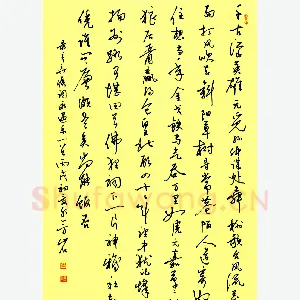 千古江山英雄无觅孙仲谋处舞榭歌台风流
雨打风吹去斜阳草树寻常巷陌人道寄奴
住想当年金戈铁马气吞万里如虎元嘉草草
狼居胥赢得仓皇北顾四十三年望中犹记烽
扬州路可堪回首佛狸祠下一片神鸦社
凭谁问廉颇老矣尚能饭否
辛弃疾词永遇乐
Shufawang.CN